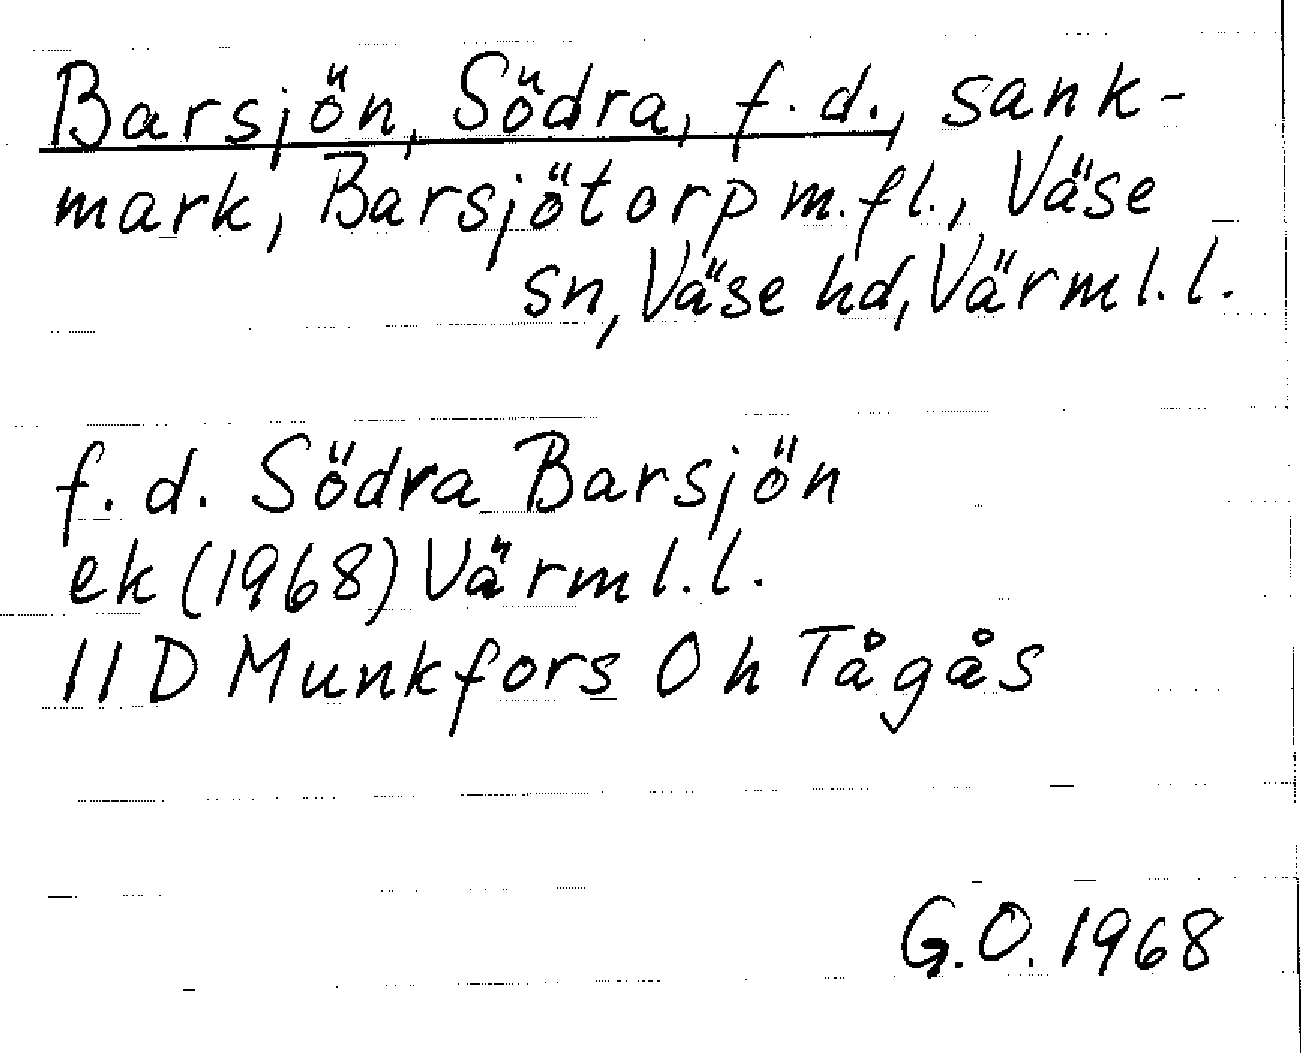 Barsjön, Södra, f. d., sank-
mark, Barsjötorp m.fl., Väse
sn, Väse hd, Värml. l.
f. d. Södra Barsjön
ek (1968) Värml. l.
11D Munkfors 0h Tågås
G.O. 1968